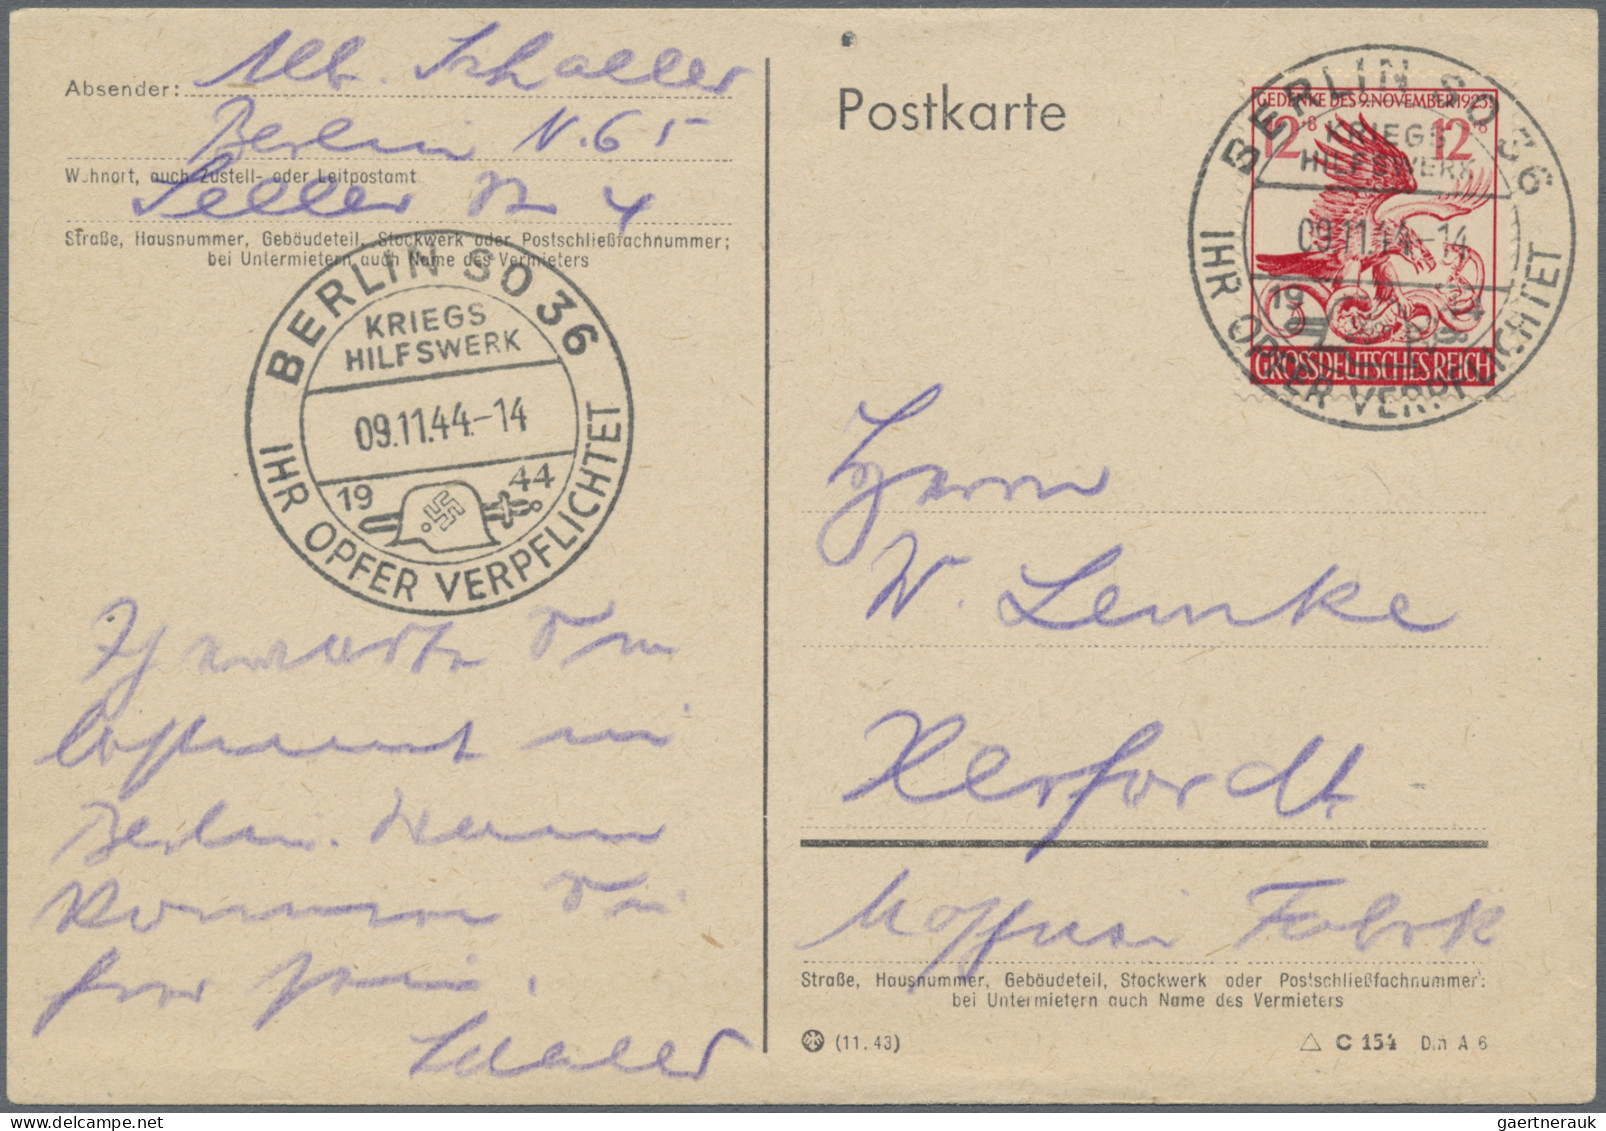 Absender: Alb. Schaller
Berlin N. 65
Wohnort, auch Zustell- oder Leitpostamt
Seller Str. 4
Straße, Hausnummer, Gebäudeteil, Stockwerk oder Postschließfachnummer;
bei Untermietern auch Name des Vermieters
BERLIN SO 36
KRIEGS
HILFSWERK
09.11.44.-14
19 44
IHR OPFER VERPFLICHTET
Berlin. Wann
kommen Sie
Schaller
Postkarte
GEDENKE DES 9. NOVEMBER 1923!
12+8 12+8
GROSSDEUTSCHES REICH
BERLIN SO 36
KRIEGS
HILFSWERK
09.11.44.-14
19 44
IHR OPFER VERPFLICHTET
Herrn
W. Lemke
Fabrik
Straße, Hausnummer, Gebäudeteil, Stockwerk oder Postschließfachnummer:
bei Untermietern auch Name des Vermieters
(11.43)
C 154 Din A 6
gaertnerauk